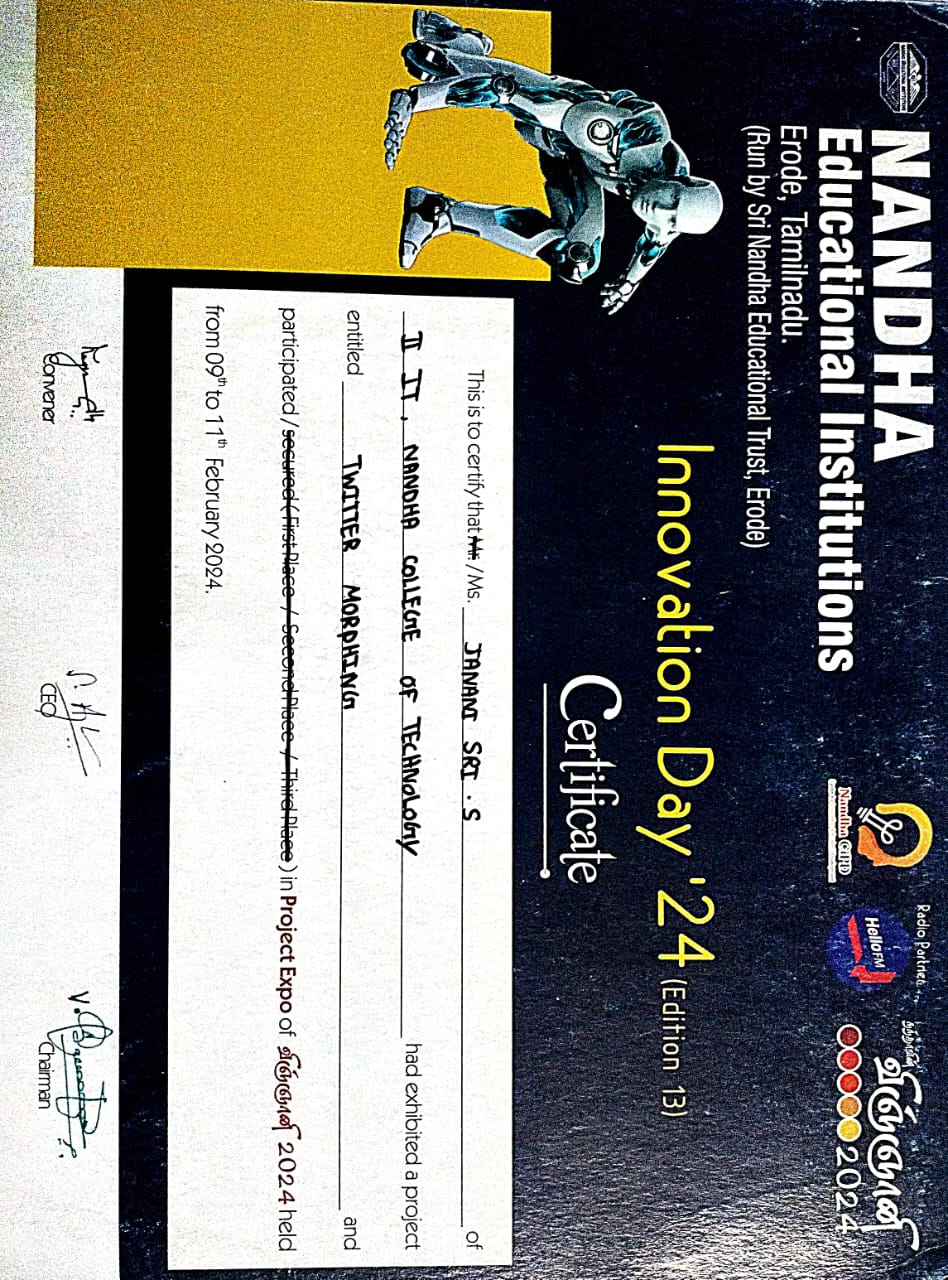 NANDHA
Educational Institutions
Erode, Tamilnadu.
(Run by Sri Nandha Educational Trust, Erode)
Nandha CiPD
Radio Partner
Hello FM
நந்தாவின்
விஞ்ஞானி
2024
Innovation Day '24 (Edition 13)
Certificate
This is to certify that Mr. / Ms. JANANI SRI . S of
II IT, NANDHA COLLEGE OF TECHNOLOGY had exhibited a project
entitled TWITTER MORPHING and
participated / secured ( First Place / Second Place / Third Place ) in Project Expo of விஞ்ஞானி 2024 held
from 09th to 11th February 2024.
Convener
CEO
Chairman